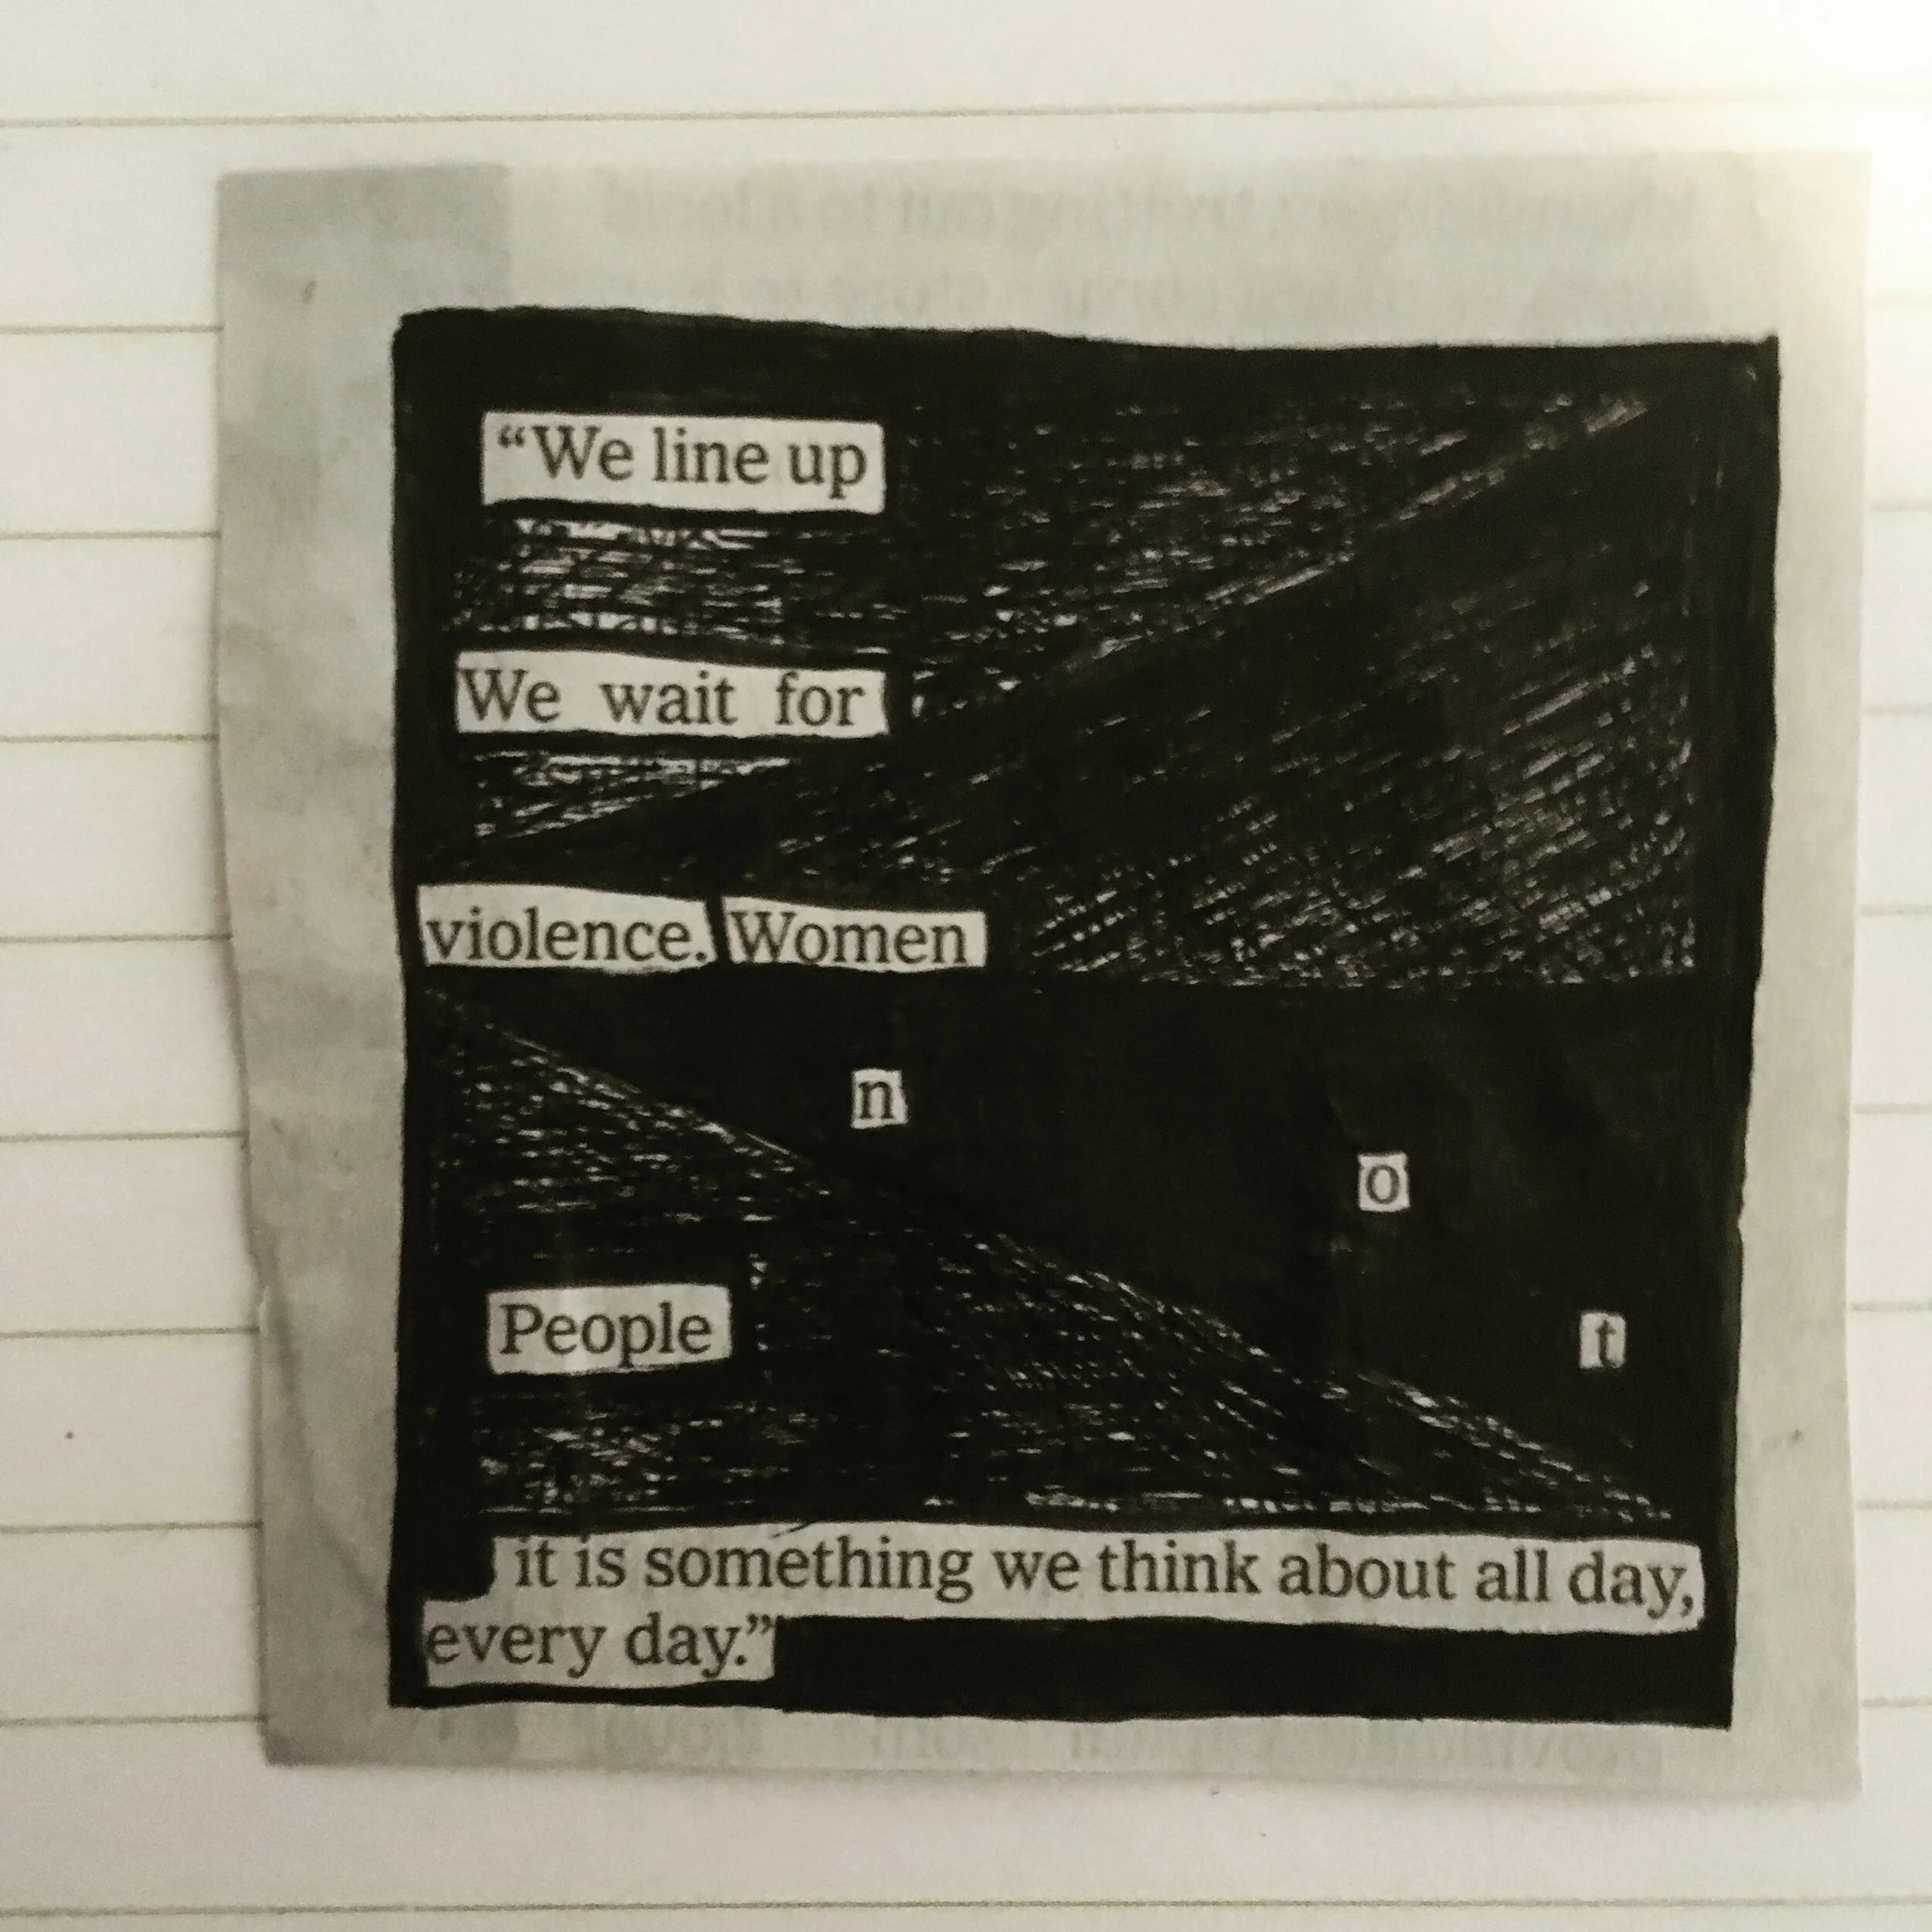 “We line up
We wait for
violence. Women
n
o
People
t
it is something we think about all day,
every day.”